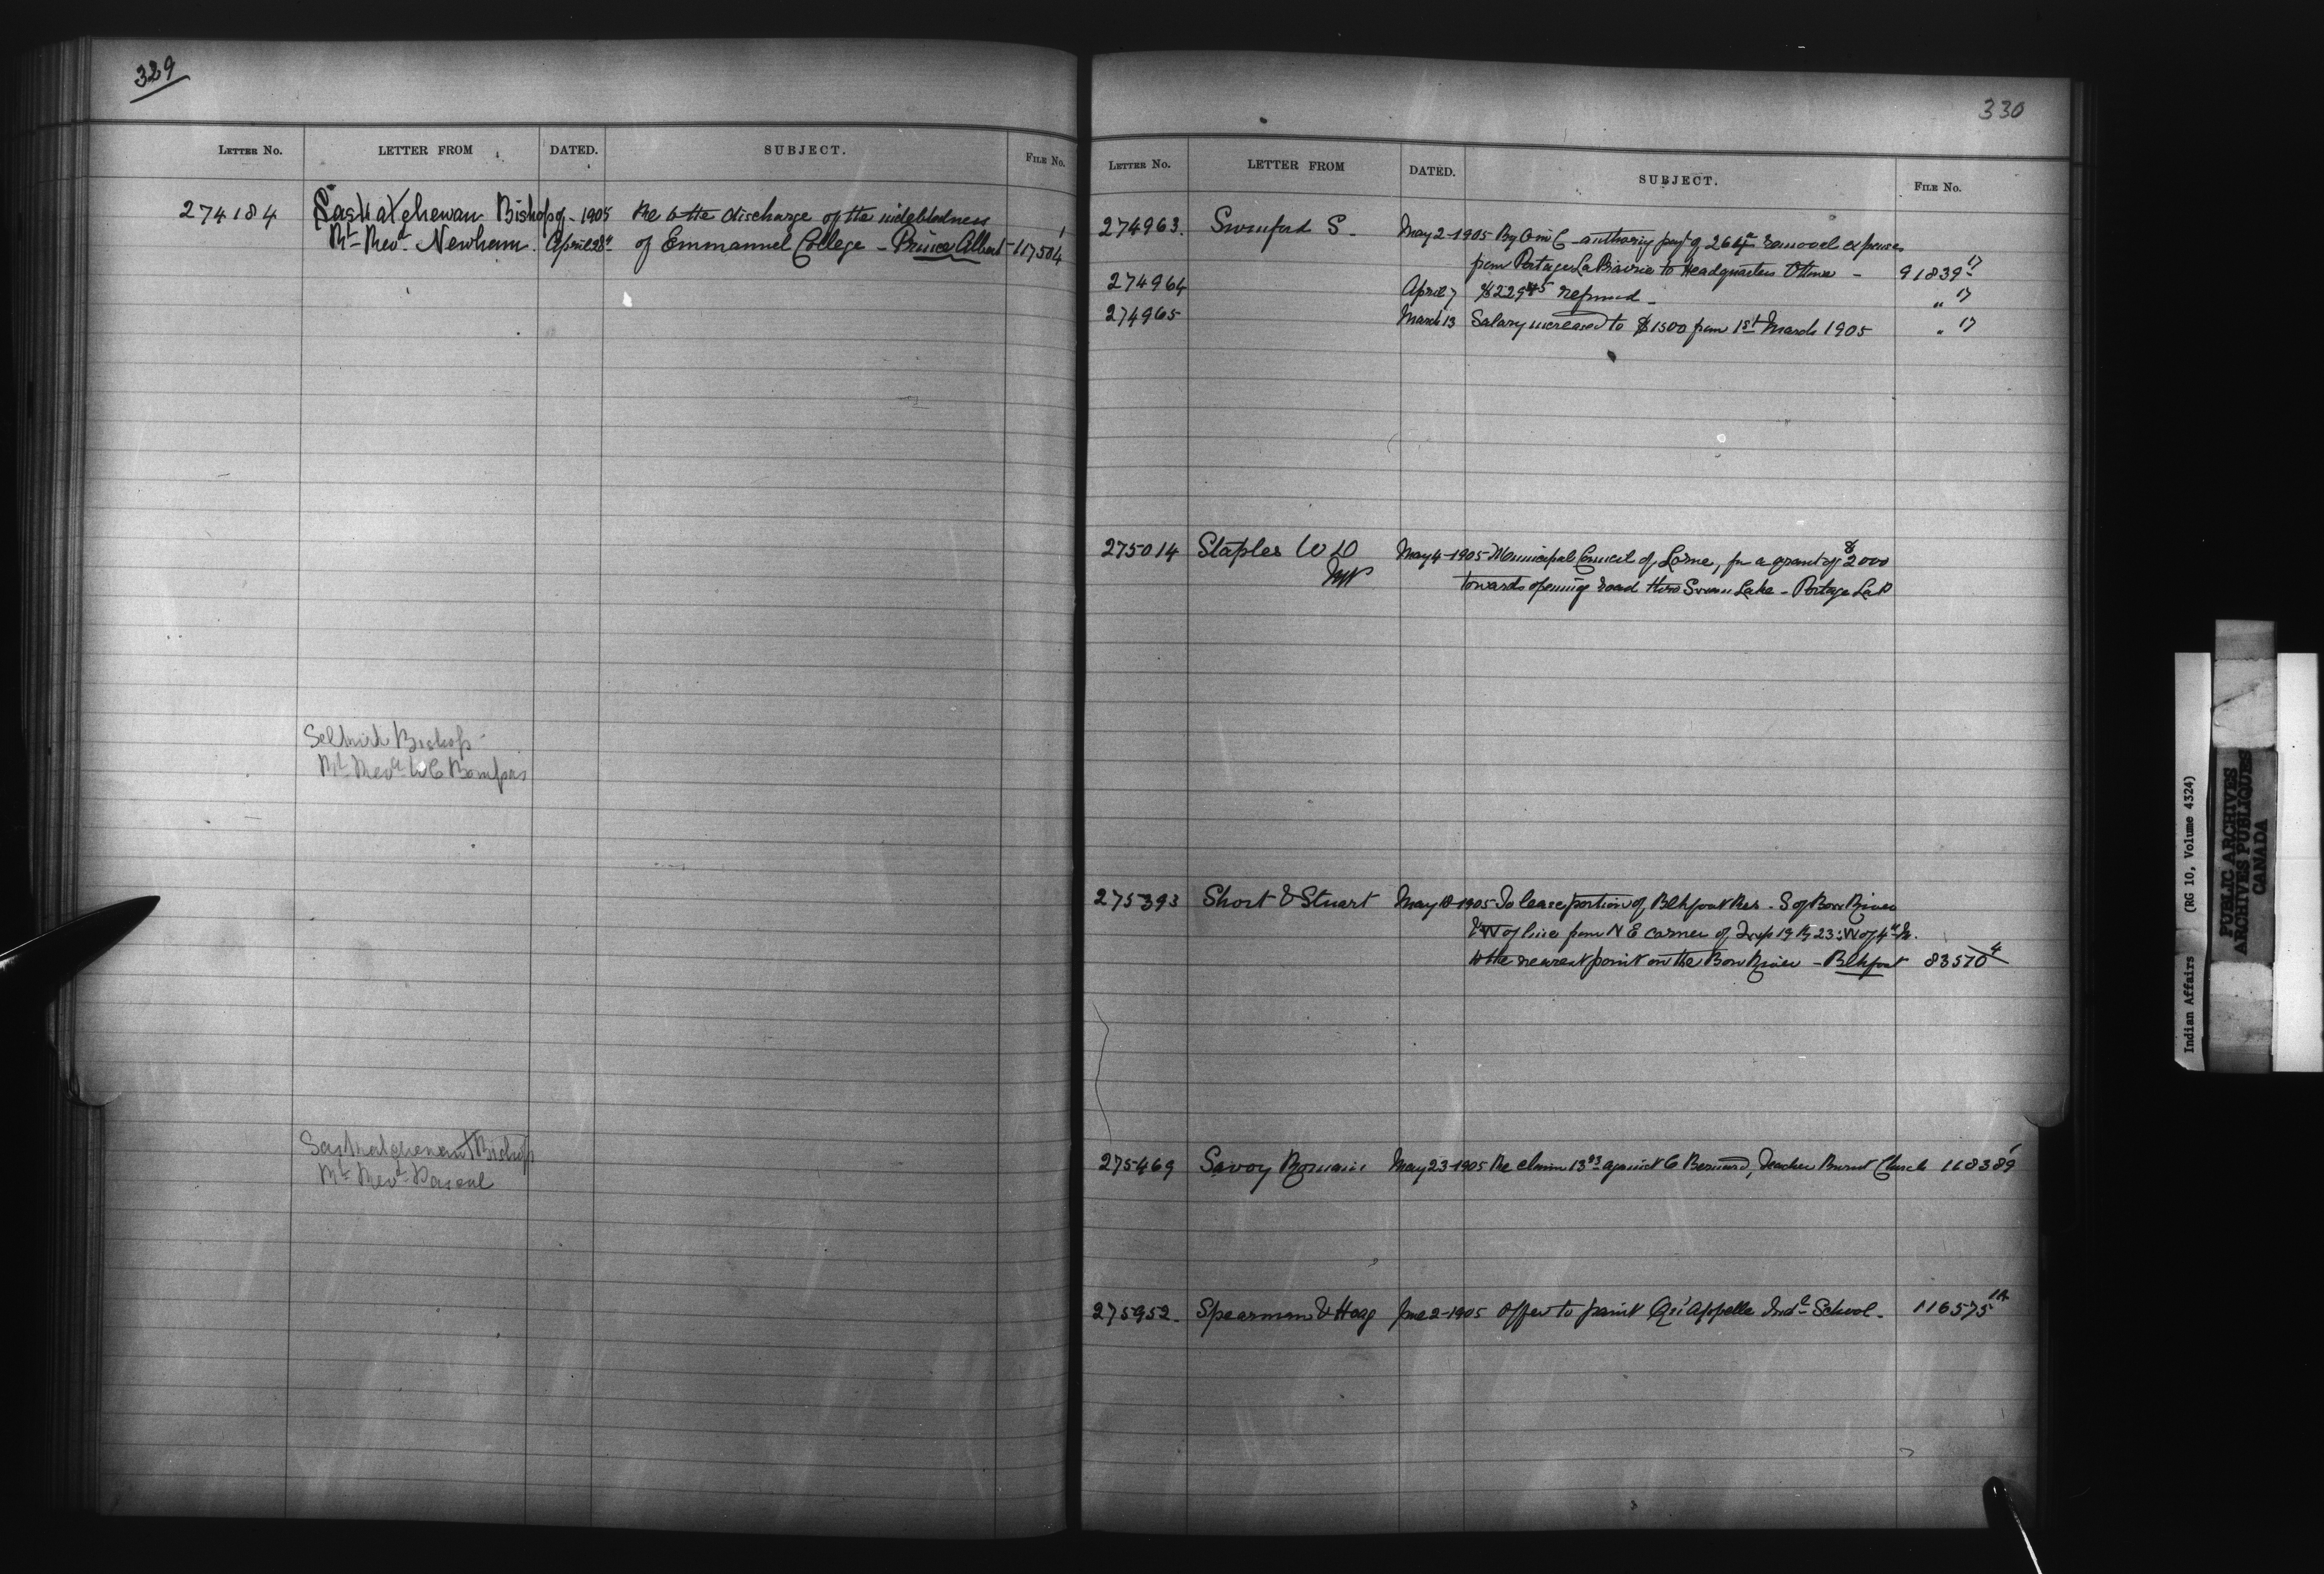 329
LETTER NO. LETTER FROM DATED. SUBJECT. FILE NO.
274184 Saskatchewan Bishop of - 1905 Re to the discharge of the indebtedness 1
Rt Revd Newham. April 28th of Emmanuel College - Prince Albert - 117504
Selkirk Bishop
Rt Revd W C Bompas
Saskatchewan Bishop
Rt Revd Pascal
330
LETTER NO. LETTER FROM DATED. SUBJECT. FILE NO.
274963. Swinford S. May 2-1905 By O in C authorizing payt of removal expenses
from Portage La Prairie to Headquarters Ottawa - 91839 17
274964 April 7 $229 45 refund - " 17
274965 March 13 Salary increased to $1500 from 1st March 1905 " 17
275014 Staples W D May 4-1905 Municipal Council of Lorne, for a grant of $2000
MP towards opening road thro Swan Lake - Portage La P
275393 Short & Stuart May 18-1905 To lease portion of Blkfoot Res. S of Bow River
& W of line from N E corner of Twp 19 Rg 23: W of 4th M.
to the nearest point on the Bow River - Blkfoot 83570 4
275469 Savoy Romain May 23-1905 Re claim 13 93 against C Bernard, Teacher Burnt Church 118389 1
275952. Spearman & Hoag June 2-1905 Offer to paint Qu'Appelle Indl School. 116575 1A
Indian Affairs (RG 10, Volume 4324)
PUBLIC ARCHIVES
ARCHIVES PUBLIQUES
CANADA